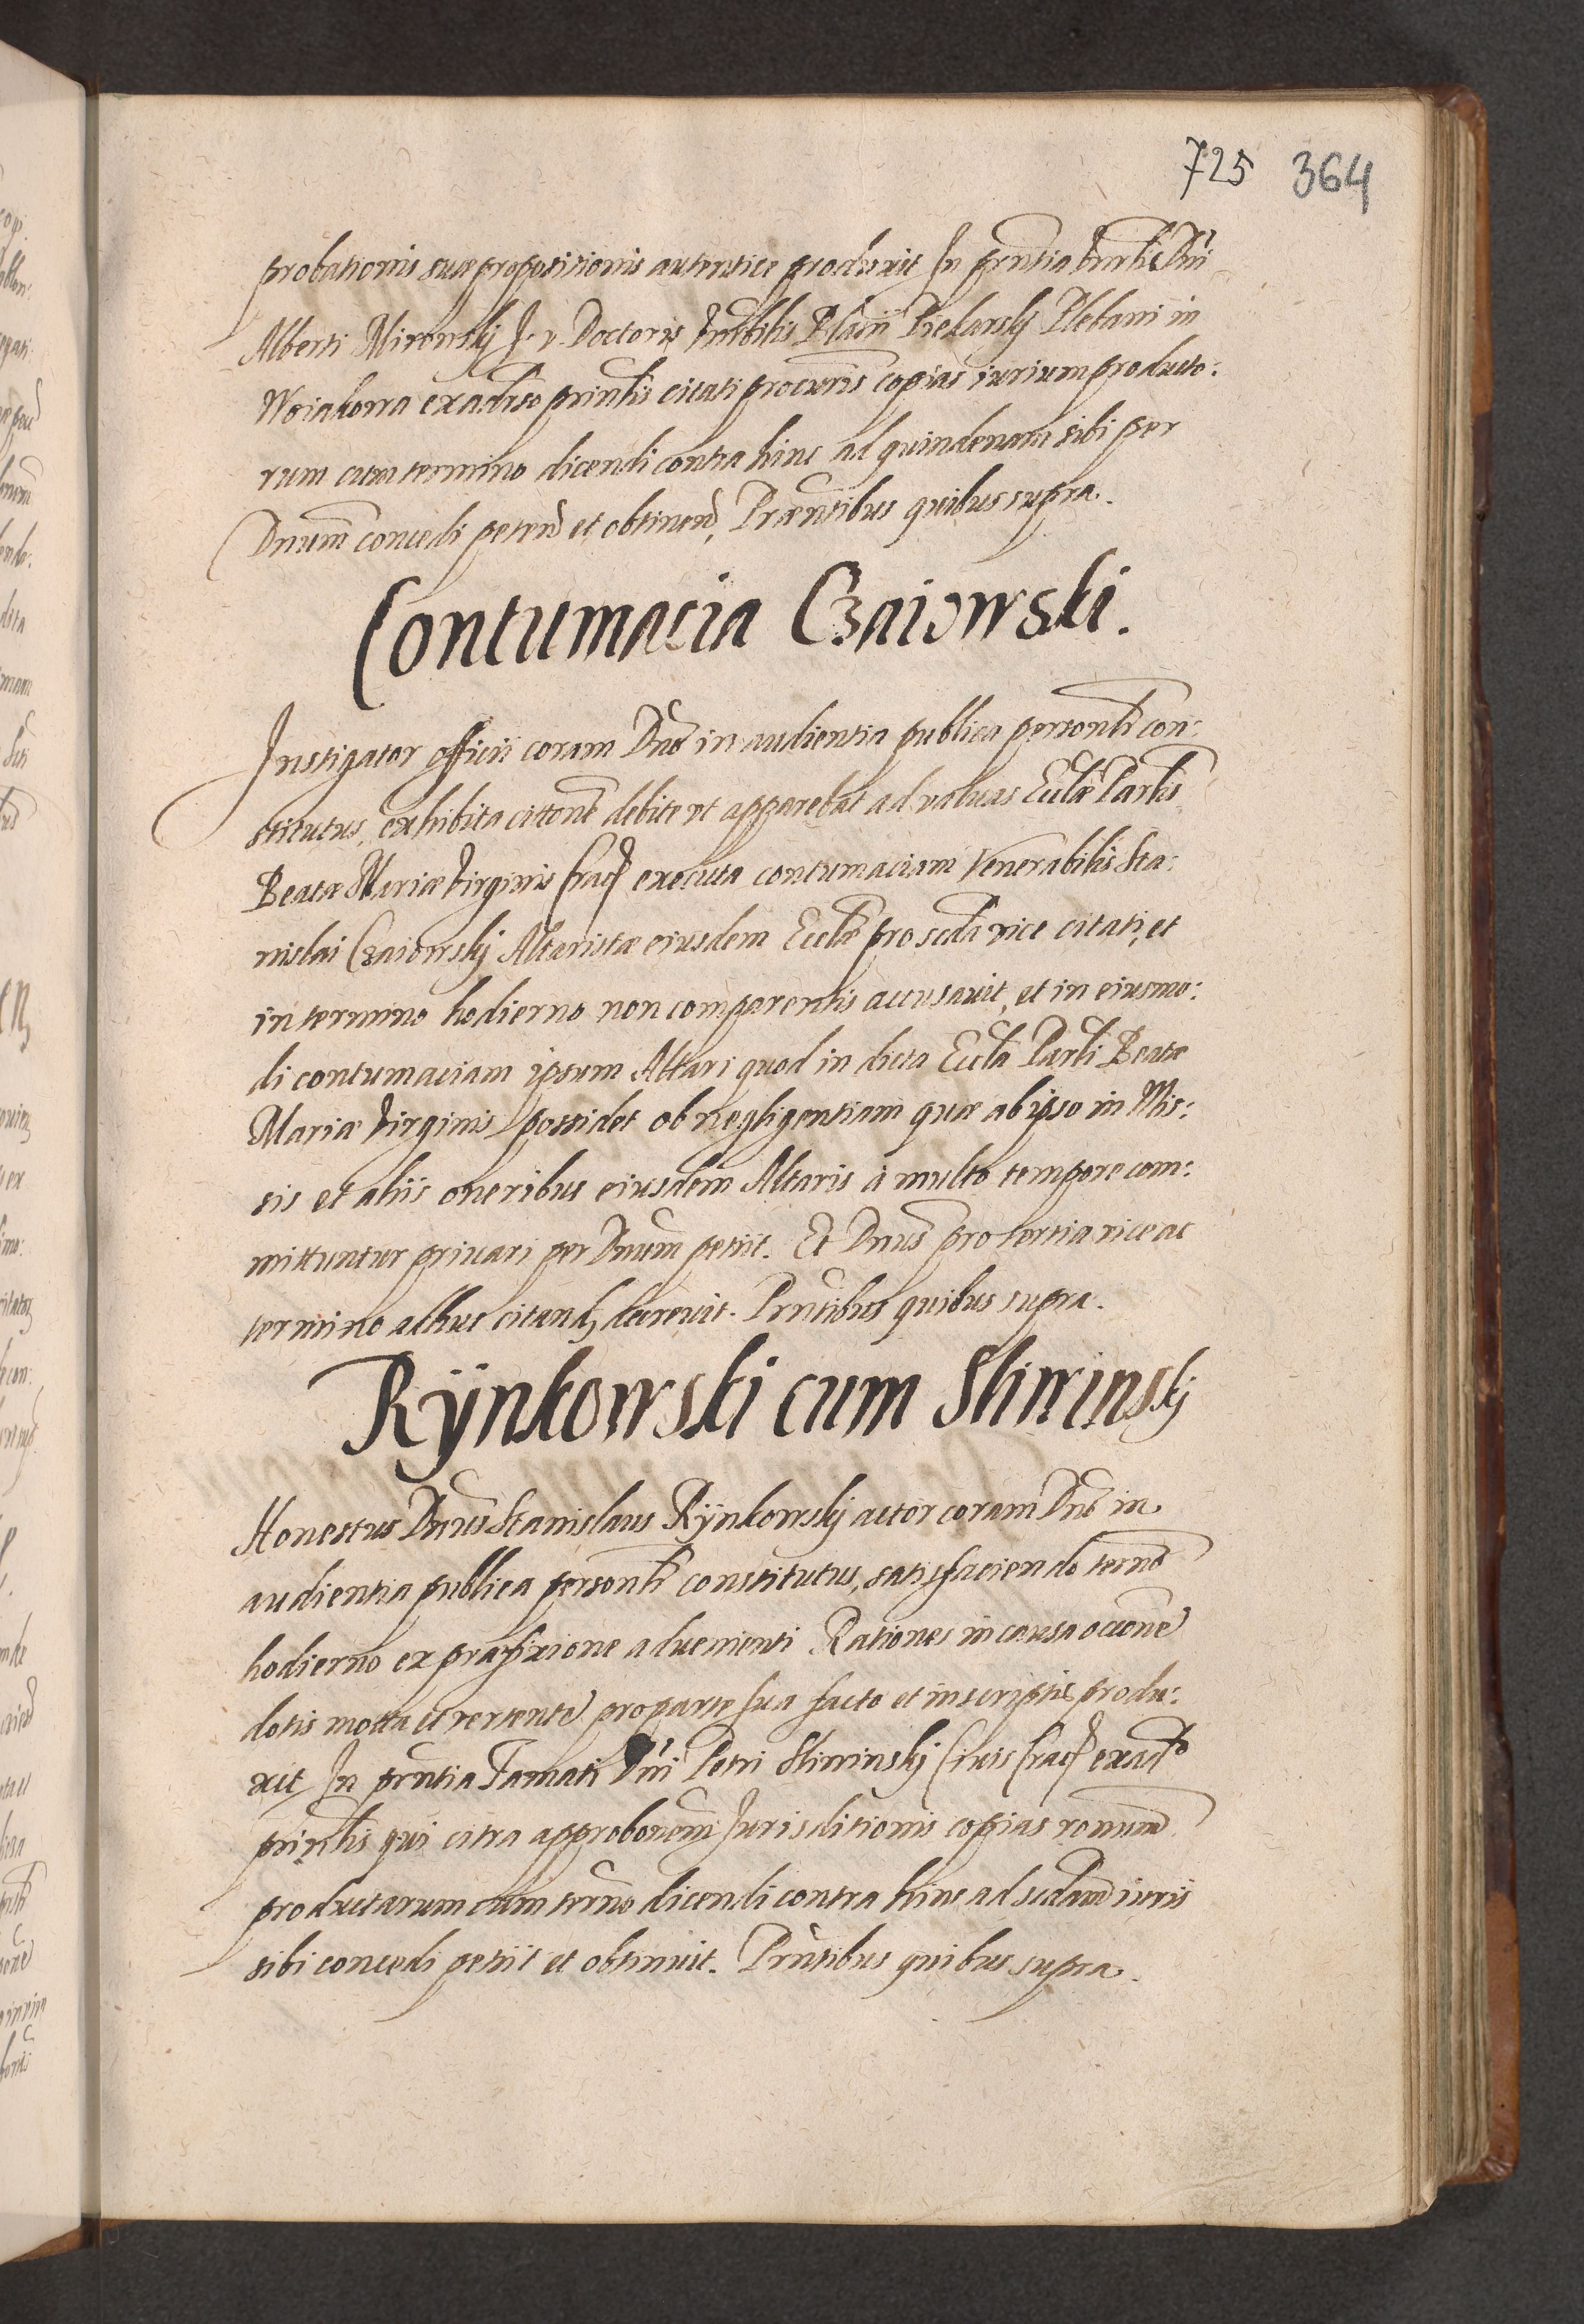 725 364
probationis suæ propositionis autentice produxit In prntia Dni
Alberti Mironskÿ J. v. Doctoris Plebani in
ex adverso prinlis citati procuris copias iurium producto:
rum cum termino dicendi contra hinc ad quindenam sibi per
Dnum concedi peten et obtinen, Præntibus quibus supra.
Contumacia Czaiowski.
Instigator officii coram Dno in audientia publica personlr con:
stitutus, exhibita cittone debite vt apparebat ad valuas Ecclæ Parlis
Beatæ Mariæ Virginis Crac executa contumaciam Venerabilis Sta:
nislai Czaiowskj Altaristæ eiusdem Ecclæ pro scda vice citati, et
in termino hodierno non comparentis accusauit, et in eiusmo:
di contumaciam ipsum Altari quod in dicta Eccla Parli Beatæ
Mariæ Virginis possidet ob negligentiam quæ ab ipso in Mis:
sis et aliis oneribus eiusdem Altaris à multo tempore com:
mittuntur priuari per Dnum petiit. Et Dnus pro tertia vice ac
termino adhuc citand decreuit. Prntibus quibus supra.
Rÿnkowski cum Sliwinskj
Honestus Dnus Stanislaus Rÿnkowskj actor coram Dno in
audientia publica personlr constitutus, satisfaciendo terno
hodierno ex præfixione aduenienti Rationes in causa occone
dotis motta et vertente pro parte sua facto et in scriptis produ:
xit In prntia Famati Dni Petri Sliwinskj Ciuis Crac ex adso
prinlis qui citra approbonem Jurisditionis copias ronum
productarum cum terno dicendi contra hinc ad scdam iuris
sibi concedi petiit et obtinuit. Prntibus quibus supra.